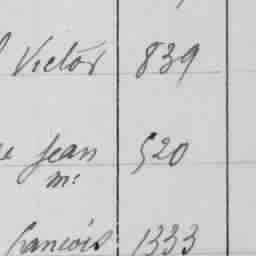 Victor 839
Jean 520
m:
francois 1333